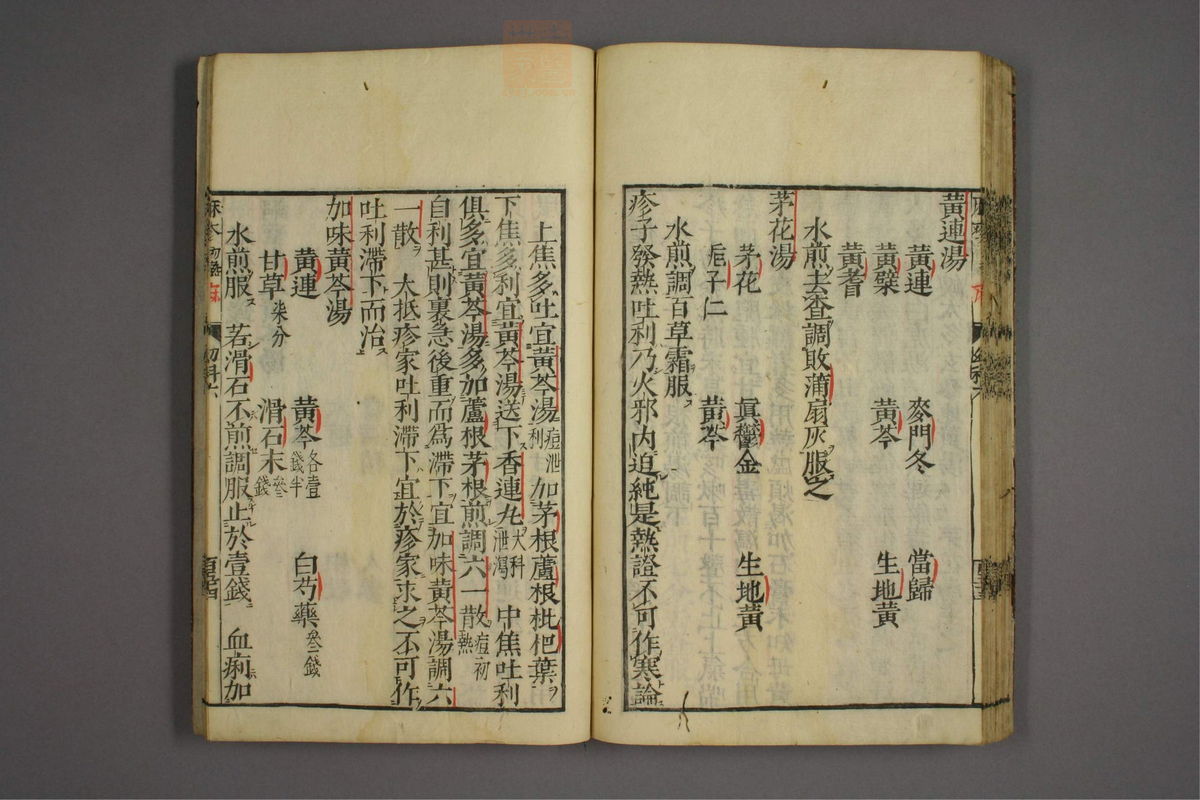 黃連湯
黃連　麥門冬　當歸
黃蘗　黃芩　生地黃
黃耆
水煎去渣調敗蒲扇灰服之
茅花湯
茅花　眞鬱金　生地黃
梔子仁　黃芩
水煎調百草霜服ス
疹子發熱吐利乃火邪内迫純是熱證不可作寒論
上焦多吐宜黃芩湯痘泄利加茅根蘆根枇杷葉ヲ
下焦多利宜黃芩湯送下香連丸大科泄瀉　中焦吐利
俱多宜黃芩湯多加蘆根茅根煎調六一散痘初熱
自利甚則裏急後重而爲滯下宜加味黃芩湯調六
一散ヲ　大抵疹家吐利滯下宜於疹家求之不可作
吐利滯下而治ス
加味黃芩湯
黃連　黃芩各壹錢半　白芍藥叄錢
甘草柒分　滑石末叄錢
水煎服ス　若滑石不煎調服止於壹錢　血痢加
幼科六